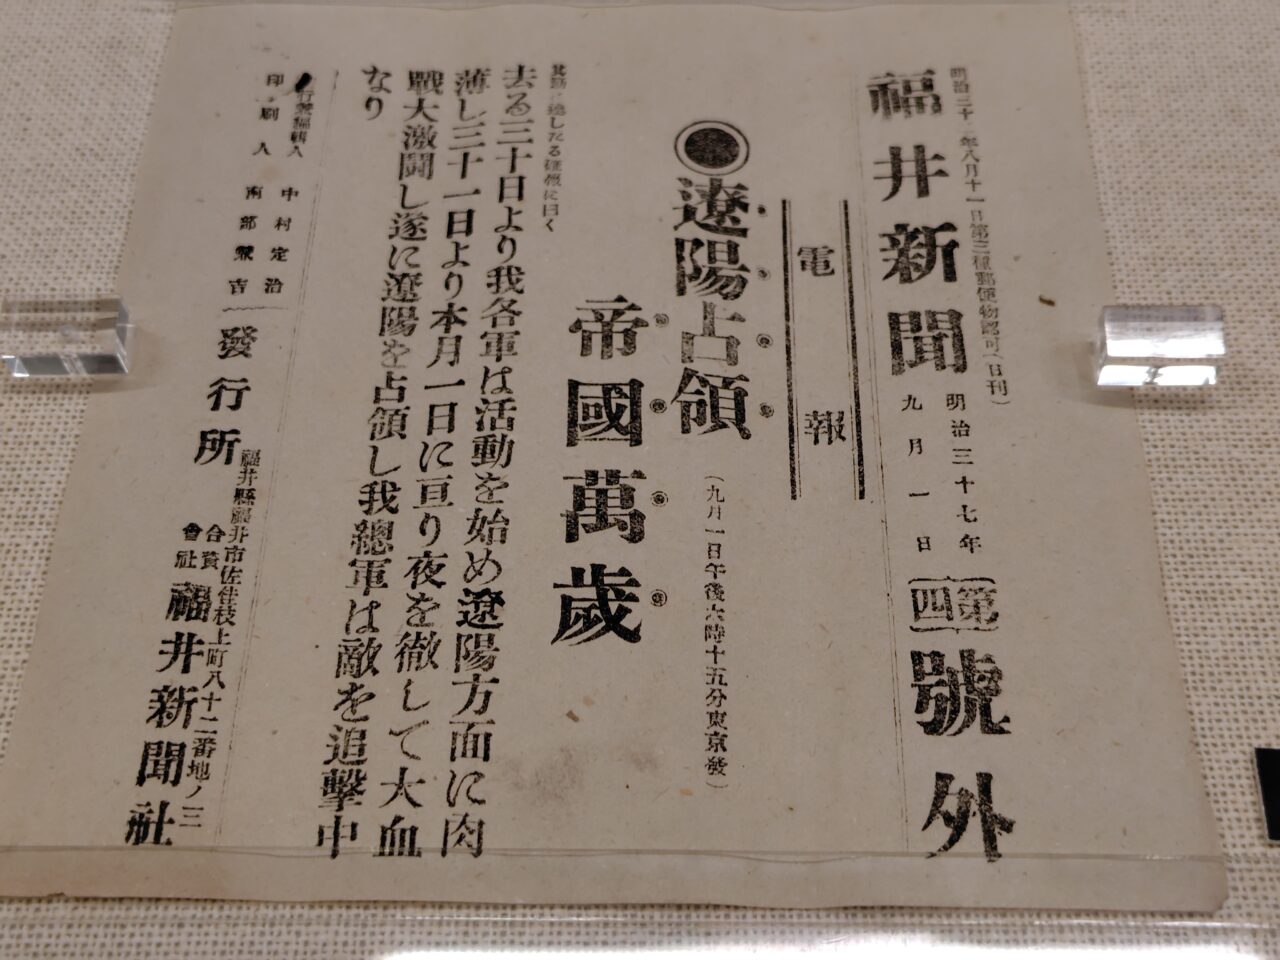 明治三十年八月十一日第三種郵便物認可(日刊)
福井新聞
明治三十七年
九月一日
第四號外
電報
◉遼陽占領
(九月一日午後六時十五分東京發)
帝國萬歲
達したる確報に曰く
去る三十日より我各軍は活動を始め遼陽方面に肉
薄し三十一日より本月一日に亘り夜を徹して大血
戰大激鬪し遂に遼陽を占領し我總軍は敵を追擊中
なり
行兼編輯人 中村定治
印刷人 南部 吉
發行所
福井縣福井市佐佳枝上町八十二番地ノ三
合資會社 福井新聞社